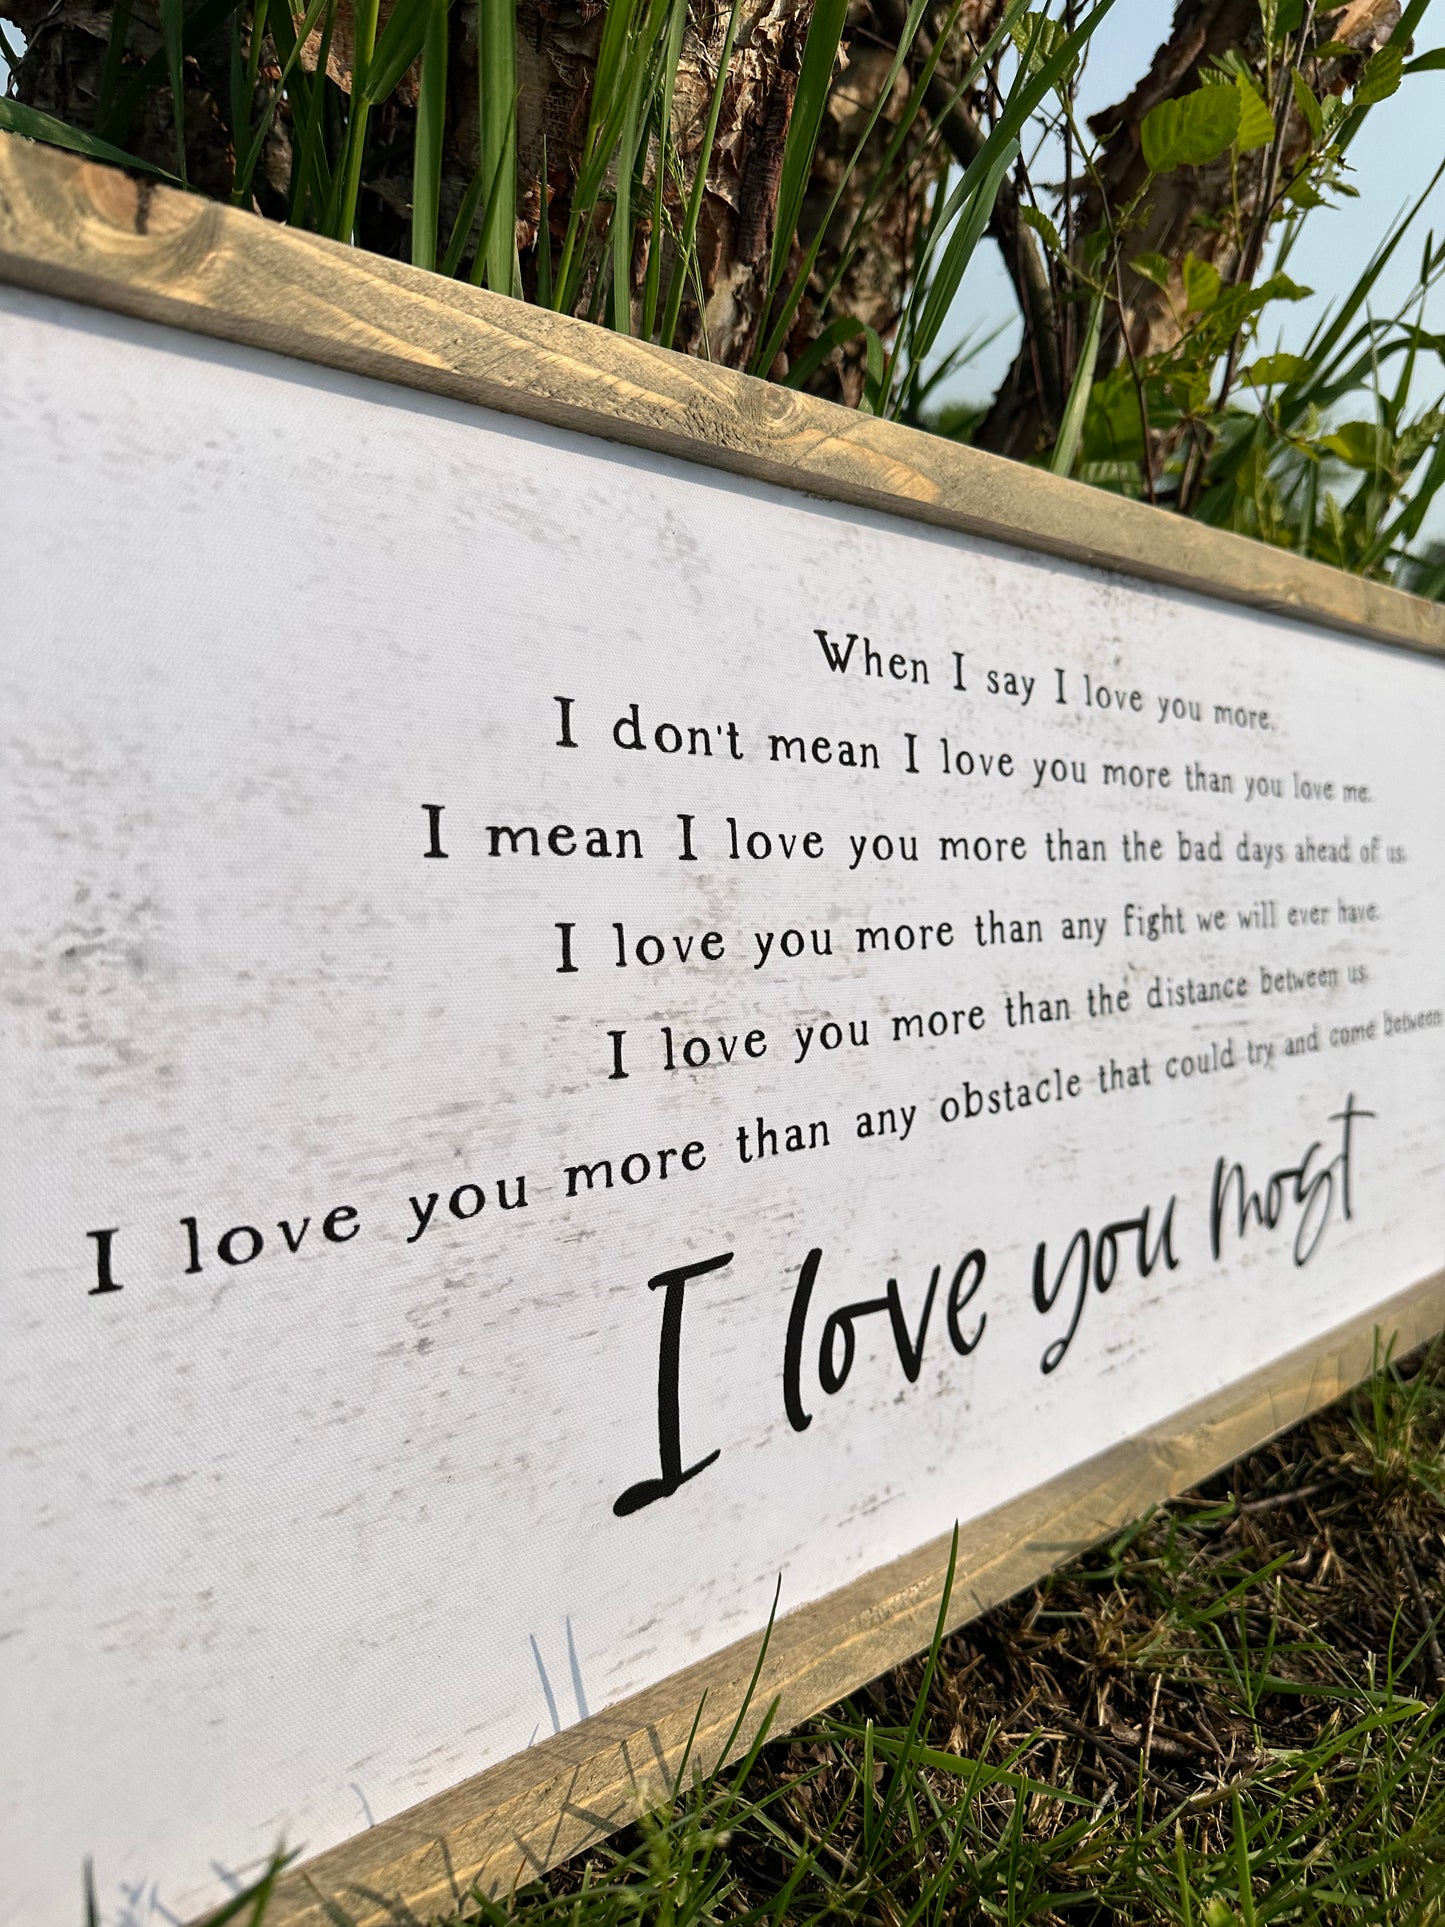 When I say I love you more.
I don't mean I love you more than you love me.
I mean I love you more than the bad days ahead of us.
I love you more than any fight we will ever have.
I love you more than the distance between us.
I love you more than any obstacle that could try and come between
I love you most